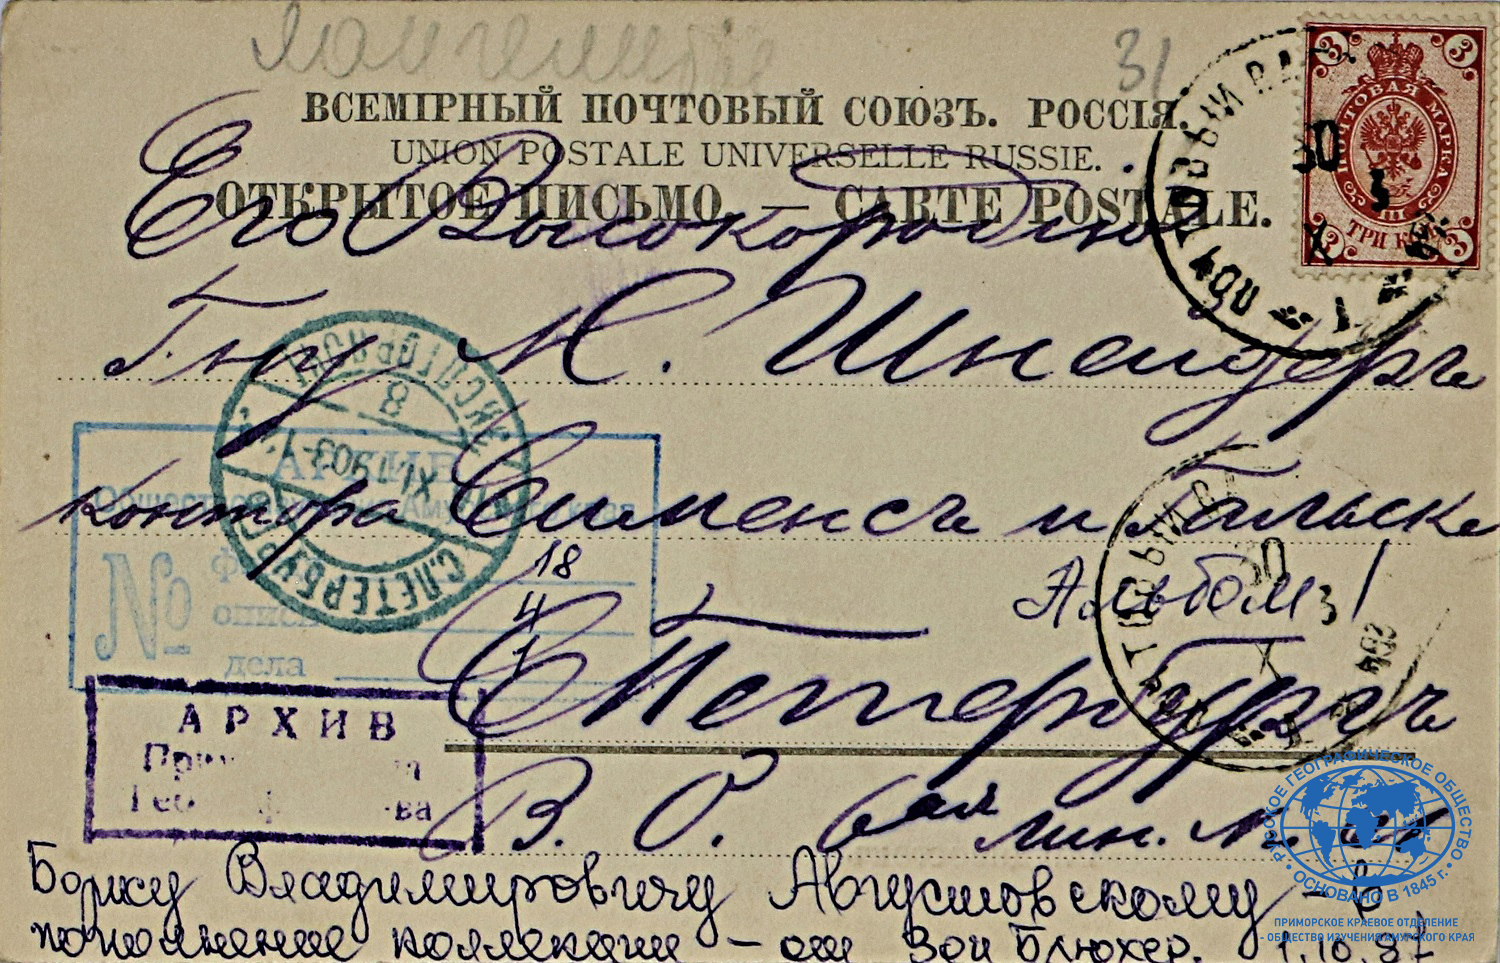 31
ВСЕМІРНЫЙ ПОЧТОВЫЙ СОЮЗЪ. РОССІЯ.
UNION POSTALE UNIVERSELLE RUSSIE.
ОТКРЫТОЕ ПИСЬМО. — CARTE POSTALE.
3 3
ПОЧТОВАЯ МАРКА
ТРИ КОП.
3 3
ПОЧТОВЫЙ ВАГ
30
X
Его Высокородію
Г-ну М. Шнейдеръ
контора Сименсъ и Гальске
С Петербургъ
В. О. 6ая лин.
8
XI 1903
С. ПЕТЕРБУРГ
АРХИВ
Общества Амурского края
№
Ф 18
описи 4
дела 1
Альбом 31
ПОЧТОВЫЙ ВАГ
30
X
903
АРХИВ
Борису Владимировичу Августовскому – в
пополнение коллекции – от Зои Блюхер. 1.10.87
РУССКОЕ ГЕОГРАФИЧЕСКОЕ ОБЩЕСТВО
• ОСНОВАНО В 1845 г. •
ПРИМОРСКОЕ КРАЕВОЕ ОТДЕЛЕНИЕ
- ОБЩЕСТВО ИЗУЧЕНИЯ АМУРСКОГО КРАЯ